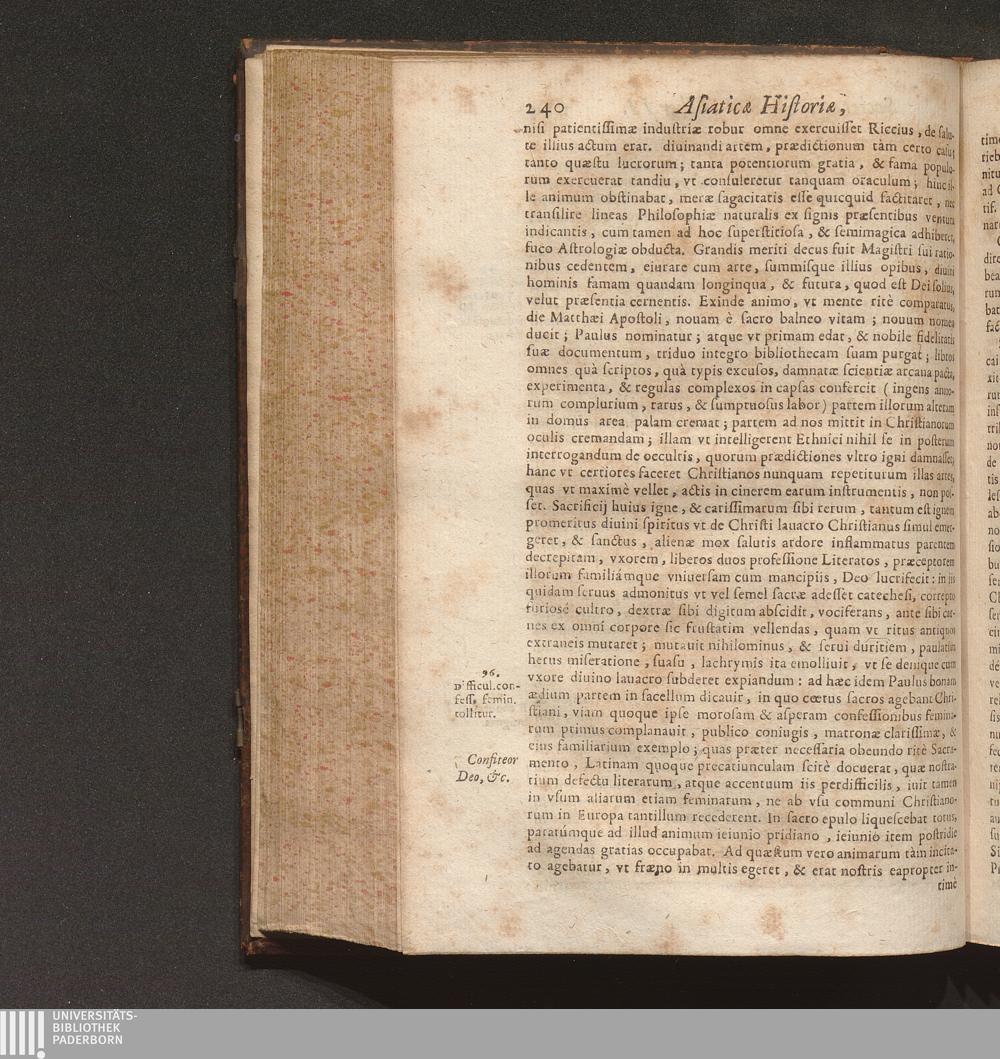 240 Asiaticæ Historiæ,
nisi patientissimæ industriæ robur omne exercuisset Riccius, de salu-
te illius actum erat. diuinandi artem, prædictionum tàm certo casu;
tanto quæstu lucrorum; tanta potentiorum gratia, & fama popula-
rum exercuerat tandiu, vt consuleretur tanquam oraculum; hinc il-
le animum obstinabat, meræ sagacitatis esse quicquid factitaret, nec
transilire lineas Philosophiæ naturalis ex signis præsentibus ventura
indicantis, cum tamen ad hoc superstitiosa, & semimagica adhiberet,
fuco Astrologiæ obducta. Grandis meriti decus fuit Magistri sui ratio-
nibus cedentem, eiurare cum arte, summisque illius opibus, diuini
hominis famam quandam longinqua, & futura, quod est Dei solius,
velut præsentia cernentis. Exinde animo, vt mente ritè comparatus,
die Matthæi Apostoli, nouam è sacro balneo vitam; nouum nomen
ducit; Paulus nominatur; atque vt primam edat, & nobile fidelitatis
suæ documentum, triduo integro bibliothecam suam purgat; libros
omnes quà scriptos, quà typis excusos, damnatæ scientiæ arcana pacta,
experimenta, & regulas complexos in capsas confercit (ingens anno-
rum complurium, rarus, & sumptuosus labor) partem illorum alteram
in domus area palam cremat; partem ad nos mittit in Christianorum
oculis cremandam; illam vt intelligerent Ethnici nihil se in posterum
interrogandum de occultis, quorum prædictiones vltro igni damnasset;
hanc vt certiores faceret Christianos nunquam repetiturum illas artes,
quas vt maximè vellet, actis in cinerem earum instrumentis, non pos-
set. Sacrificij huius igne, & carissimarum sibi rerum, tantum est ignem
promeritus diuini spiritus vt de Christi lauacro Christianus simul emer-
geret, & sanctus, alienæ mox salutis ardore inflammatus parentem
decrepitam, vxorem, liberos duos professione Literatos, præceptorem
illorum familiámque vniuersam cum mancipiis, Deo lucrifecit: in iis
quidam seruus admonitus vt vel semel sacræ adesset catechesi, correpto
furiosè cultro, dextræ sibi digitum abscidit, vociferans, ante sibi car-
nes ex omni corpore sic frustatim vellendas, quam vt ritus antiquos
extraneis mutaret; mutauit nihilominus, & serui duritiem, paulatim
herus miseratione, suasu, lachrymis ita emolliuit, vt se denique cum
vxore diuino lauacro subderet expiandum: ad hæc idem Paulus bonam
ædium partem in sacellum dicauit, in quo cœtus sacros agebant Chri-
stiani, viam quoque ipse morosam & asperam confessionibus femina-
rum primus complanauit, publico coniugis, matronæ clarissimæ, &
eius familiarium exemplo; quas præter necessaria obeundo ritè Sacra-
mento, Latinam quoque precatiunculam scitè docuerat, quæ nostra-
tium defectu literarum, atque accentuum iis perdifficilis, iuit tamen
in vsum aliarum etiam feminarum, ne ab vsu communi Christiano-
rum in Europa tantillum recederent. In sacro epulo liquescebat totus,
paratúmque ad illud animum ieiunio pridiano, ieiunio item postridie
ad agendas gratias occupabat. Ad quæstum vero animarum tàm incita-
to agebatur, vt fræno in multis egeret, & erat nostris eapropter in-
timè
96.
Difficul. con-
fess. femin.
tollitur.
Confiteor
Deo, &c.
UNIVERSITÄTS-
BIBLIOTHEK
PADERBORN